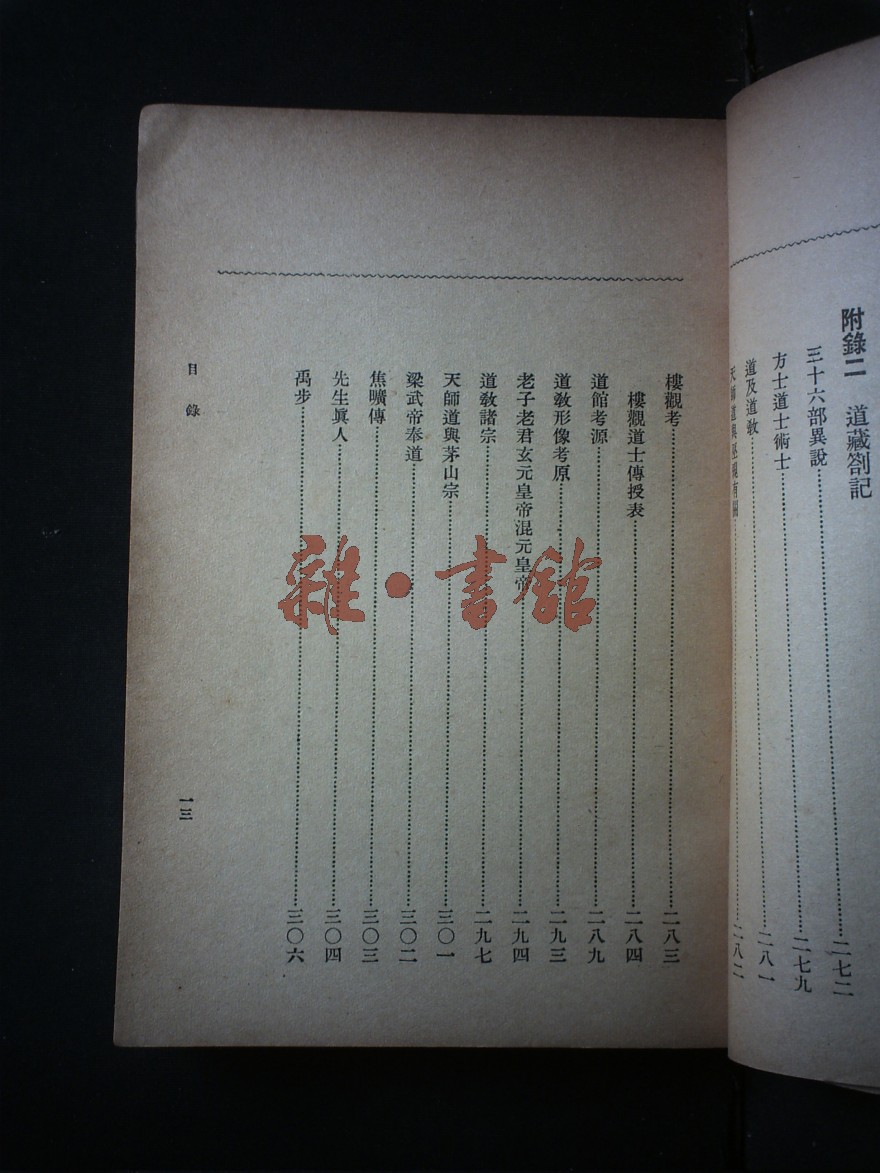 附錄二 道藏劄記
三十六部異說……二七二
方士道士術士……二七九
道及道敎……二八一
天師道與巫覡有關……二八二
樓觀考……二八三
樓觀道士傳授表……二八四
道館考源……二八九
道敎形像考原……二九三
老子老君玄元皇帝混元皇帝……二九四
道敎諸宗……二九七
天師道與茅山宗……三〇一
梁武帝奉道……三〇二
焦曠傳……三〇三
先生眞人……三〇四
禹步……三〇六
目錄
一三
雜·書館